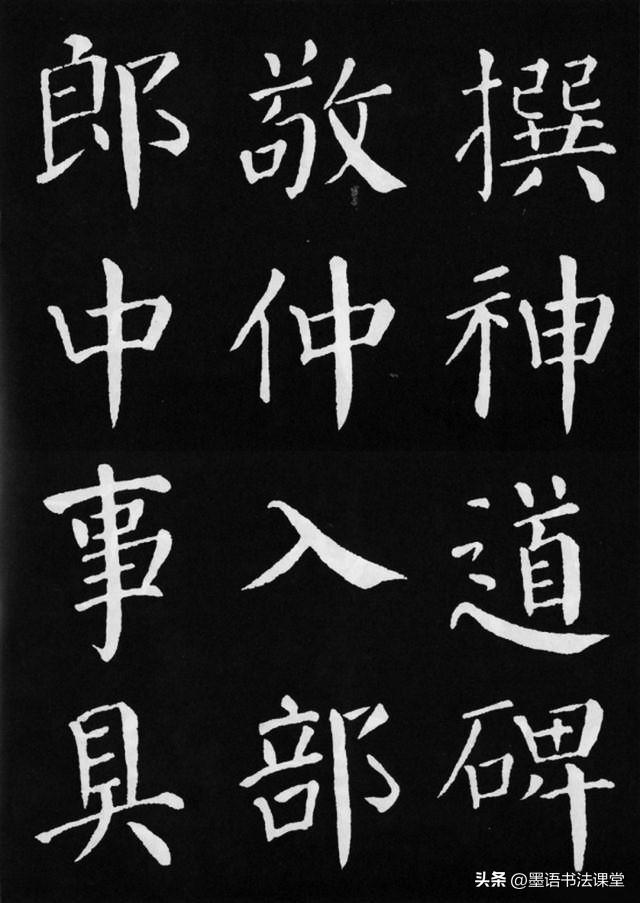 撰神道碑
敬仲入部
郎中事具
头条 @墨语书法课堂